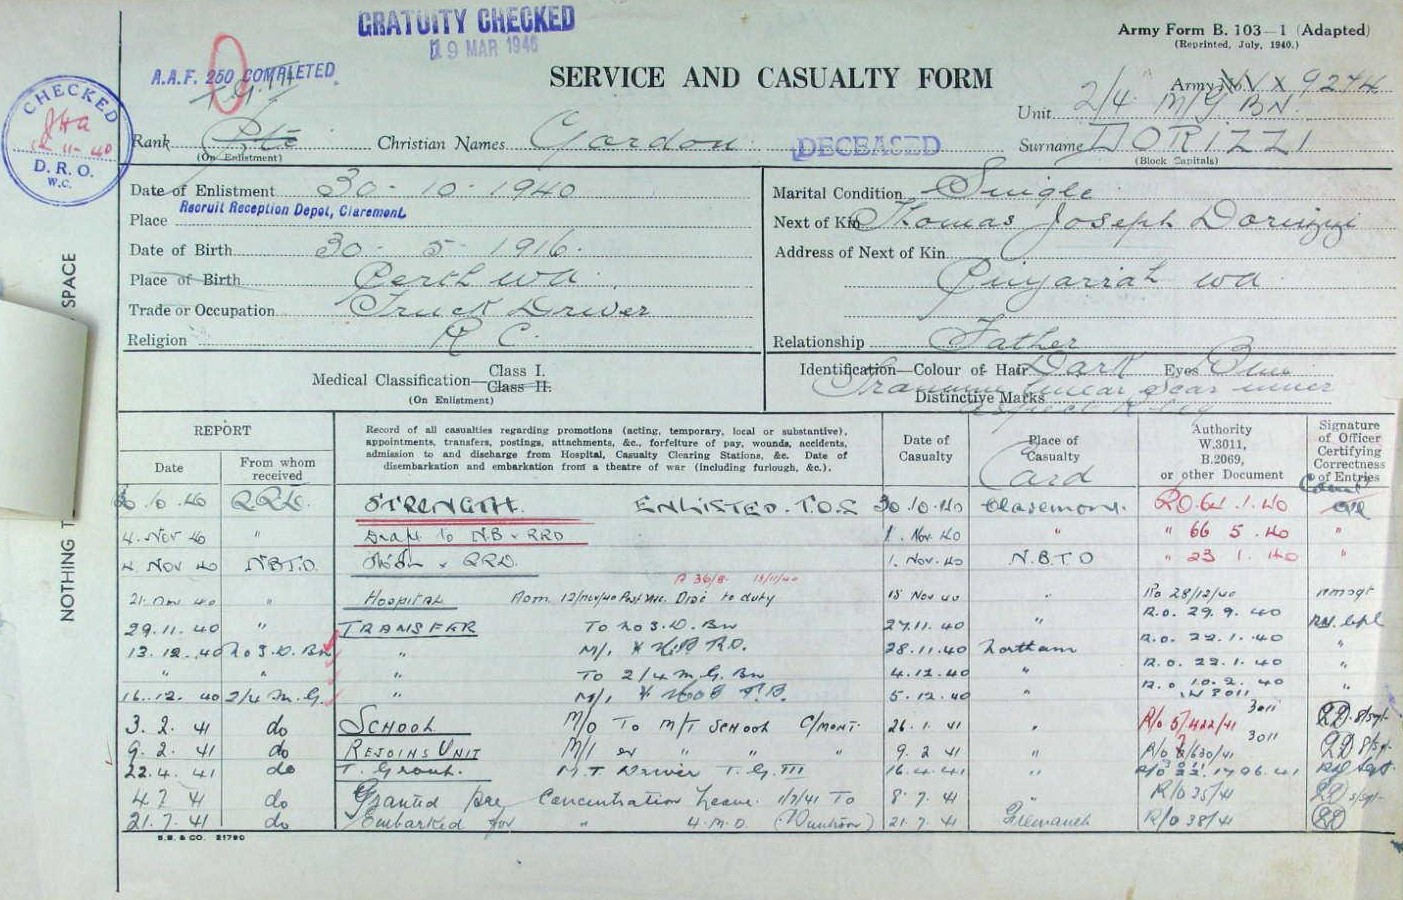 GRATUITY CHECKED
19 MAR 1946
Army Form B. 103—1 (Adapted)
(Reprinted, July, 1940.)
A.A.F. 250 COMPLETED
SERVICE AND CASUALTY FORM
Army No. WX 9274
Unit 2/4 M/G BN.
CHECKED
11-40
D. R. O.
W.C.
Rank Pte
(On Enlistment)
Christian Names Gordon
DECEASED
Surname DORIZZI
(Block Capitals)
Date of Enlistment 30-10-1940
Place Recruit Reception Depot, Claremont.
Date of Birth 30-5-1916.
Place of Birth Perth WA
Trade or Occupation Truck Driver
Religion R C.
Marital Condition Single
Next of Kin Thomas Joseph Dorizzi
Address of Next of Kin
WA
Relationship Father
Medical Classification—Class I.
Class II.
(On Enlistment)
Identification—Colour of Hair Dark Eyes Blue
Distinctive Marks linear scar inner
aspect R leg
NOTHING T SPACE
REPORT
Date
From whom received
Record of all casualties regarding promotions (acting, temporary, local or substantive), appointments, transfers, postings, attachments, &c., forfeiture of pay, wounds, accidents, admission to and discharge from Hospital, Casualty Clearing Stations, &c. Date of disembarkation and embarkation from a theatre of war (including furlough, &c.).
Date of Casualty
Place of Casualty
Card
Authority W.3011, B.2069, or other Document
Signature of Officer Certifying Correctness of Entries
30.10.40 RRD. STRENGTH. ENLISTED. T.O.S 30.10.40 Claremont. RO 61.1.40
4. Nov 40 " Draft to N.B. RRD 1. Nov. 40 " " 66 5.40 "
4 Nov 40 NBTD RRD. 1. Nov. 40 N.B.T.D " 23 1.40 "
21 Nov 40 " HOSPITAL Adm. 12/Nov/40 Disc to duty 18 Nov 40 " Ro 28/12/40
29.11.40 " TRANSFER To No 3. D. Bn 27.11.40 " R.O. 29.9.40
13.12.40 No 3. D. Bn " M/I 28.11.40 Northam R.O. 22.1.40 "
" " " To 2/4 M.G. Bn 4.12.40 " R.O. 22.1.40 "
16.12.40 2/4 M.G. " M/I 5.12.40 " R.O. 10.2.40 "
W 3011
3. 2. 41 do SCHOOL M/O To M/T SCHOOL C/MONT. 26.1.41 " R/o 5/422/41 3011
9. 2. 41 do REJOINS UNIT M/I ex " " " 9 2 41 " R/o 6/630/41 3011
22.4.41 do T. Group. M.T Driver T.G. III 16.4.41 "
4.7 41 do Granted pre Concentration Leave 1/7/41 To 8 7. 41 " R/o 35/41
21.7.41 do Embarked for " 4. M.D. 21.7 41 Fremantle R/O 38/41
S.B. & CO. 21790